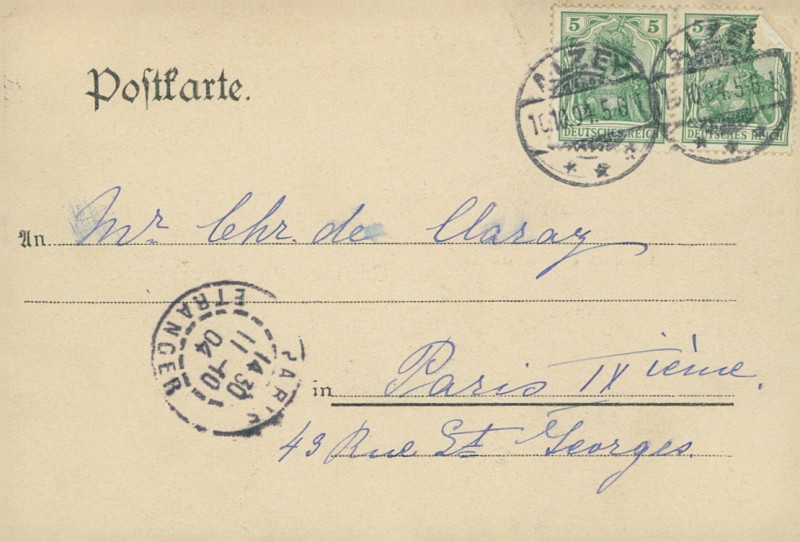 5 5 5
DEUTSCHES REICH DEUTSCHES REICH
ALZEY ALZEY
10.10.04.5-6 10.04.5-6
Postkarte.
An Mr. Chr. de Claraz
PARIS ETRANGER
14 30
11 - 10
04
in Paris IX ième.
43 Rue St Georges.